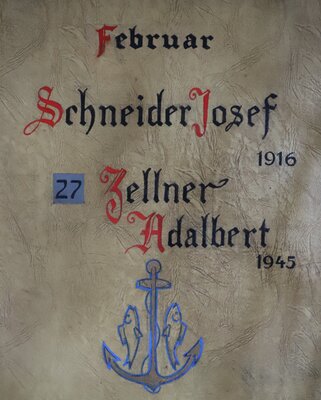 Februar
Schneider Josef
1916
27 Zellner
Adalbert
1945